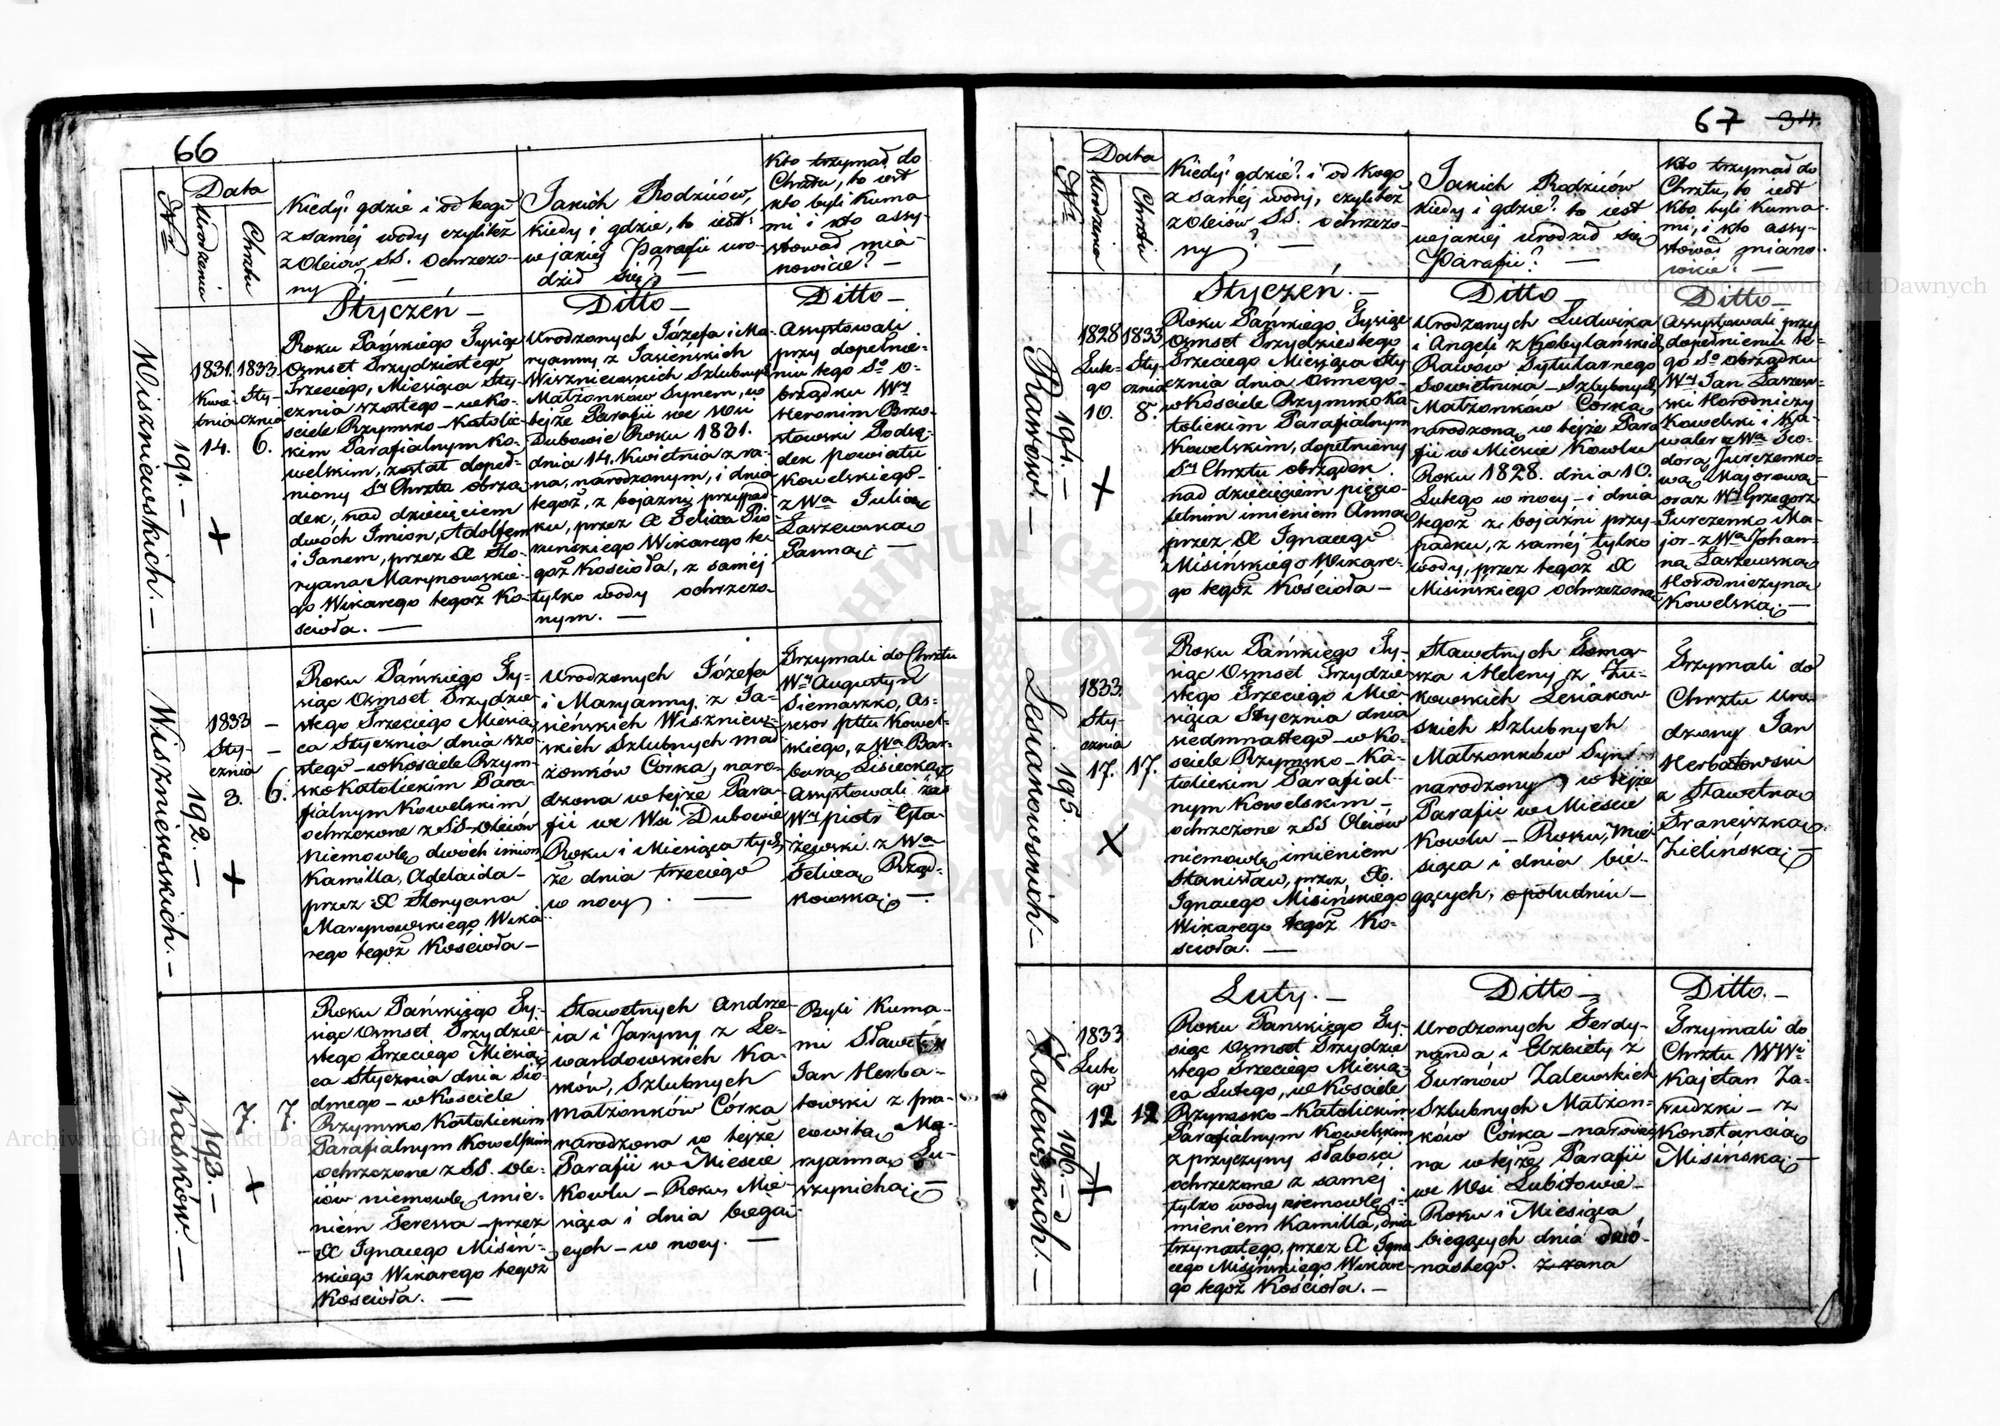 66
Nr
Data
Urodzenia
Chrztu
Kiedy? gdzie i od kogo
z samej wody czyliteż
z Oleiów SS. ochrzczo-
ny? —
Jakich Rodziców,
kiedy i gdzie, to iest:
w jakiéj Parafii uro-
dził się? —
Kto trzymał do
Chrztu, to iest
kto byli Kuma
mi i kto assy-
stował mia-
nowicie? —
Wiszniewskich. —
191. —
1831.
Kwie-
tnia
14.
1833
Sty-
cznia
6.
Styczeń —
Roku Pańskiego Tysiąc
Osmset Trzydziestego
Trzeciego, Miesiąca Sty-
cznia szostego – w Ko-
sciele Rzymsko-Katolic-
kim Parafialnym Ko-
welskim, został dopeł-
niony Sgo Chrztu obrzą
dek, nad dziecięciem
dwóch Imion, Adolfem
i Janem, przez X Flo-
ryana Marynowskie-
go Wikarego tegoż Ko-
ścioła. —
Ditto —
Urodzonych Józefa i Ma-
ryanny z Jasienskich
Wiszniewskich Szlubnych
Małżonków Synem, w
tejże Parafii we Wsi
Dubowie Roku 1831.
dnia 14. Kwietnia z ra-
na, narodzonym, i dnia
tegoż, z bojaźni przypad
ku, przez X Felixa
Wikarego te-
goż Kościoła, z saméj
tylko wody ochrzczo-
nym. —
Ditto —
Assystowali
przy dopełnie-
niu tego So o-
brządku Wy
Heronim Brzo-
stowski Podsę-
dek powiatu
Kowelskiego –
z Wą Julią
Zaszewską
Panną —
Wiszniewskich. —
192. —
1833 —
Sty- —
cznia
3.
6.
Roku Pańskiego Ty-
siąc Osmset Trzydzie
stego Trzeciego Miesią
ca Stycznia dnia szo
stego – w Kosciele Rzym-
sko Katolickim Para-
fialnym Kowelskim
ochrzczone z SS Oleiów
Niemowlę dwóch imion
Kamilla, Adelaida –
przez X Floryana
Marynowskiego Wika
rego tegoż Kościoła —
Urodzonych Józefa
i Maryanny z Ja-
sieńskich Wiszniew-
skich Szlubnych mał
żonków Córka, naro-
dzona w tejże Para-
fii we Wsi Dubowie
Roku i Miesiąca tych
że dnia trzeciego
w nocy. —
Trzymali do Chrztu
Wy Augustyn
Siemaszko, As-
sesor pttu Kowel-
skiego, z Wą Bar-
barą Lisiecką
Assystowali zaś
Wy Piotr Gła-
żejwski z Wą
Felicą Rząd-
kowską —
Kasków. —
193. —
7.
7.
Roku Pańskiego Ty-
siąc Osmset Trzydzie
stego Trzeciego Miesią
ca Stycznia dnia Sió-
dmego – w Kosciele
Rzymsko Katolickim
Parafialnym Kowelskim
ochrzczone z SS. Ole-
iów niemowlę imie-
niem Teressa – przez
X Ignacego Misiń-
skiego Wikarego tegoż
Kościoła. —
Sławetnych Andrze-
ia i Jaryny z Le-
wandowskich Ka-
sków, Szlubnych
Małżonków Córka
narodzona w tejże
Parafii w Miescie
Kowlu – Roku, Mie-
siąca i dnia bieżą-
cych – w nocy. —
Byli Kuma-
mi Sławetny
Jan Herba-
towski z pra-
cowitą Ma-
ryanną Lu-
szynichą —
67 34.
Nr
Data
Urodzenia
Chrztu
Kiedy? gdzie? i od kogo
z saméj wody, czyliteż
z Oleiów SS. ochrzczo-
ny? —
Jakich Rodziców
kiedy i gdzie? to iest
w jakiéj urodził się
Parafii? —
Kto trzymał do
Chrztu, to iest
Kto byli Kuma-
mi, i kto assy-
stował miano-
wicie? —
Rawów. —
194. —
1828
Lute-
go
10.
1833
Sty-
cznia
8.
Styczeń. —
Roku Pańskiego Tysiąc
Osmset Trzydziestego
Trzeciego Miesiąca Sty
cznia dnia Osmego –
w Kościele Rzymsko Ka
tolickim Parafialnym
Kowelskim, dopełniony
Sgo Chrztu obrządek
nad dziecięciem pięcio-
letnim imieniem Anna
przez X Ignacego
Misińskiego Wikare-
go tegoż Kościoła —
Ditto —
Urodzonych Ludwika
i Angeli z Kobylańskich
Rawów Tytularnego
Sowietnika – Szlubnych
Małżonków Córka
narodzona w tejże Para
fii w Miescie Kowlu
Roku 1828. dnia 10.
Lutego w nocy – i dnia
tegoż z bojaźni przy-
padku, z saméj tylko
wody, przez tegoż X
Misińskiego ochrzczona
Ditto —
Assystowali przy
dopełnieniu te-
go So obrządku
Wy Jan Zaszew-
ski Horodniczy
Kowelski i Ka-
waler z Wą Teo-
dorą Jurczenko-
wą Majorową
oraz Wy Grzegorz
Jurczenko Ma-
jor – z Wą Johan-
ną Zaszewską
Horodniczyną
Kowelską. —
Lesiakowskich. —
195
1833
Sty-
cznia
17.
17.
Roku Pańskiego Ty-
siąc Osmset Trzydzie
stego Trzeciego Mie-
siąca Stycznia dnia
siedmnastego – w Ko-
sciele Rzymsko – Ka-
tolickim Parafial-
nym Kowelskim –
ochrzczone z SS Oleiów
niemowlę imieniem
Stanisław, przez X.
Ignacego Misińskiego
Wikarego tegoż Ko-
ścioła. —
Sławetnych Toma-
sza i Heleny z Żu-
kowskich Lesiakow
skich Szlubnych
Małżonków Syn
narodzony w tejże
Parafii w Miescie
Kowlu – Roku, Mie-
siąca i dnia bie-
gących, opołudniu —
Trzymali do
Chrztu Uro-
dzony Jan
Herbatowski
z Sławetną
Franciszką
Zielińską —
Zalewskich. —
196. —
1833
Lute
go
12
12
Luty. —
Roku Pańskiego Ty-
siąc Osmset Trzydzie
stego Trzeciego Miesią
ca Lutego, w Kosciele
Rzymsko – Katolickim
Parafialnym Kowelskim
z przyczyny słabości
ochrzczone z saméj
tylko wody niemowlę i-
mieniem Kamilla, dnia
trzynastego, przez X Igna
cego Misińskiego Wikare-
go tegoż Kościoła. —
Ditto —
Urodzonych Ferdy-
nanda i Elżbiety z
Turnów Zalewskich
Szlubnych Małżon-
ków Córka – narodzo
na w tejże Parafii
we Wsi Lubitowie –
Roku i Miesiąca
biegących dnia dwó-
nastego. z rana
Ditto. —
Trzymali do
Chrztu WWi
Kajetan Za-
rudzki – z
Konstancią
Misińską —
Archiwum Główne Akt Dawnych
Archiwum Główne Akt Dawnych
ARCHIWUM GŁÓWNE AKT DAWNYCH